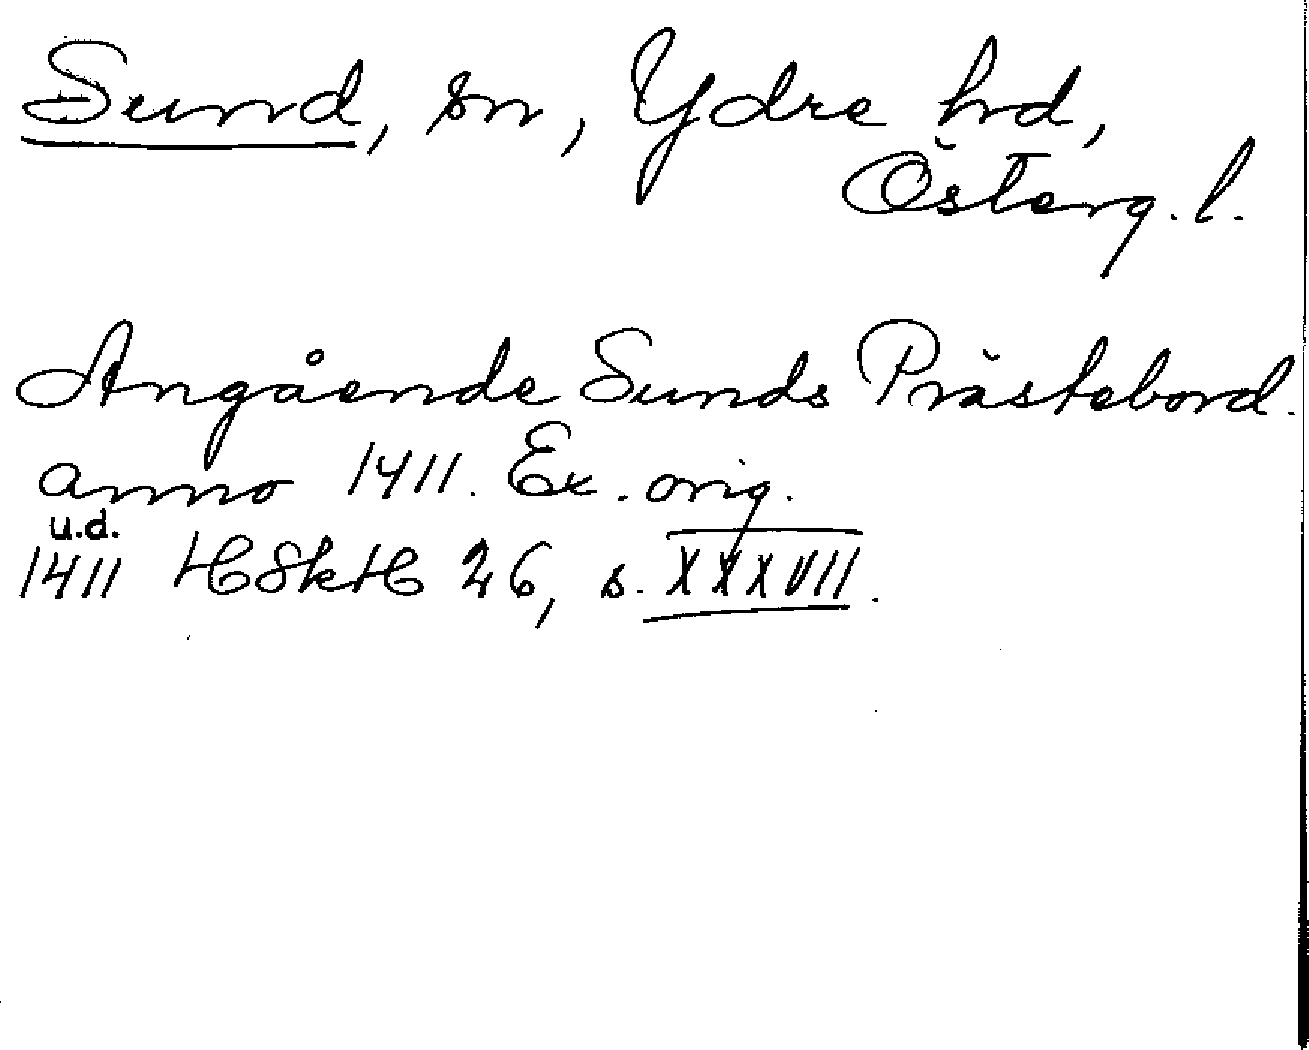 Sund, sn, Ydre hd,
Österg. l.
Angående Sunds Prästebord.
anno 1411. Ex. orig.
u.d.
1411 HSkH 26, s. XXXVII.